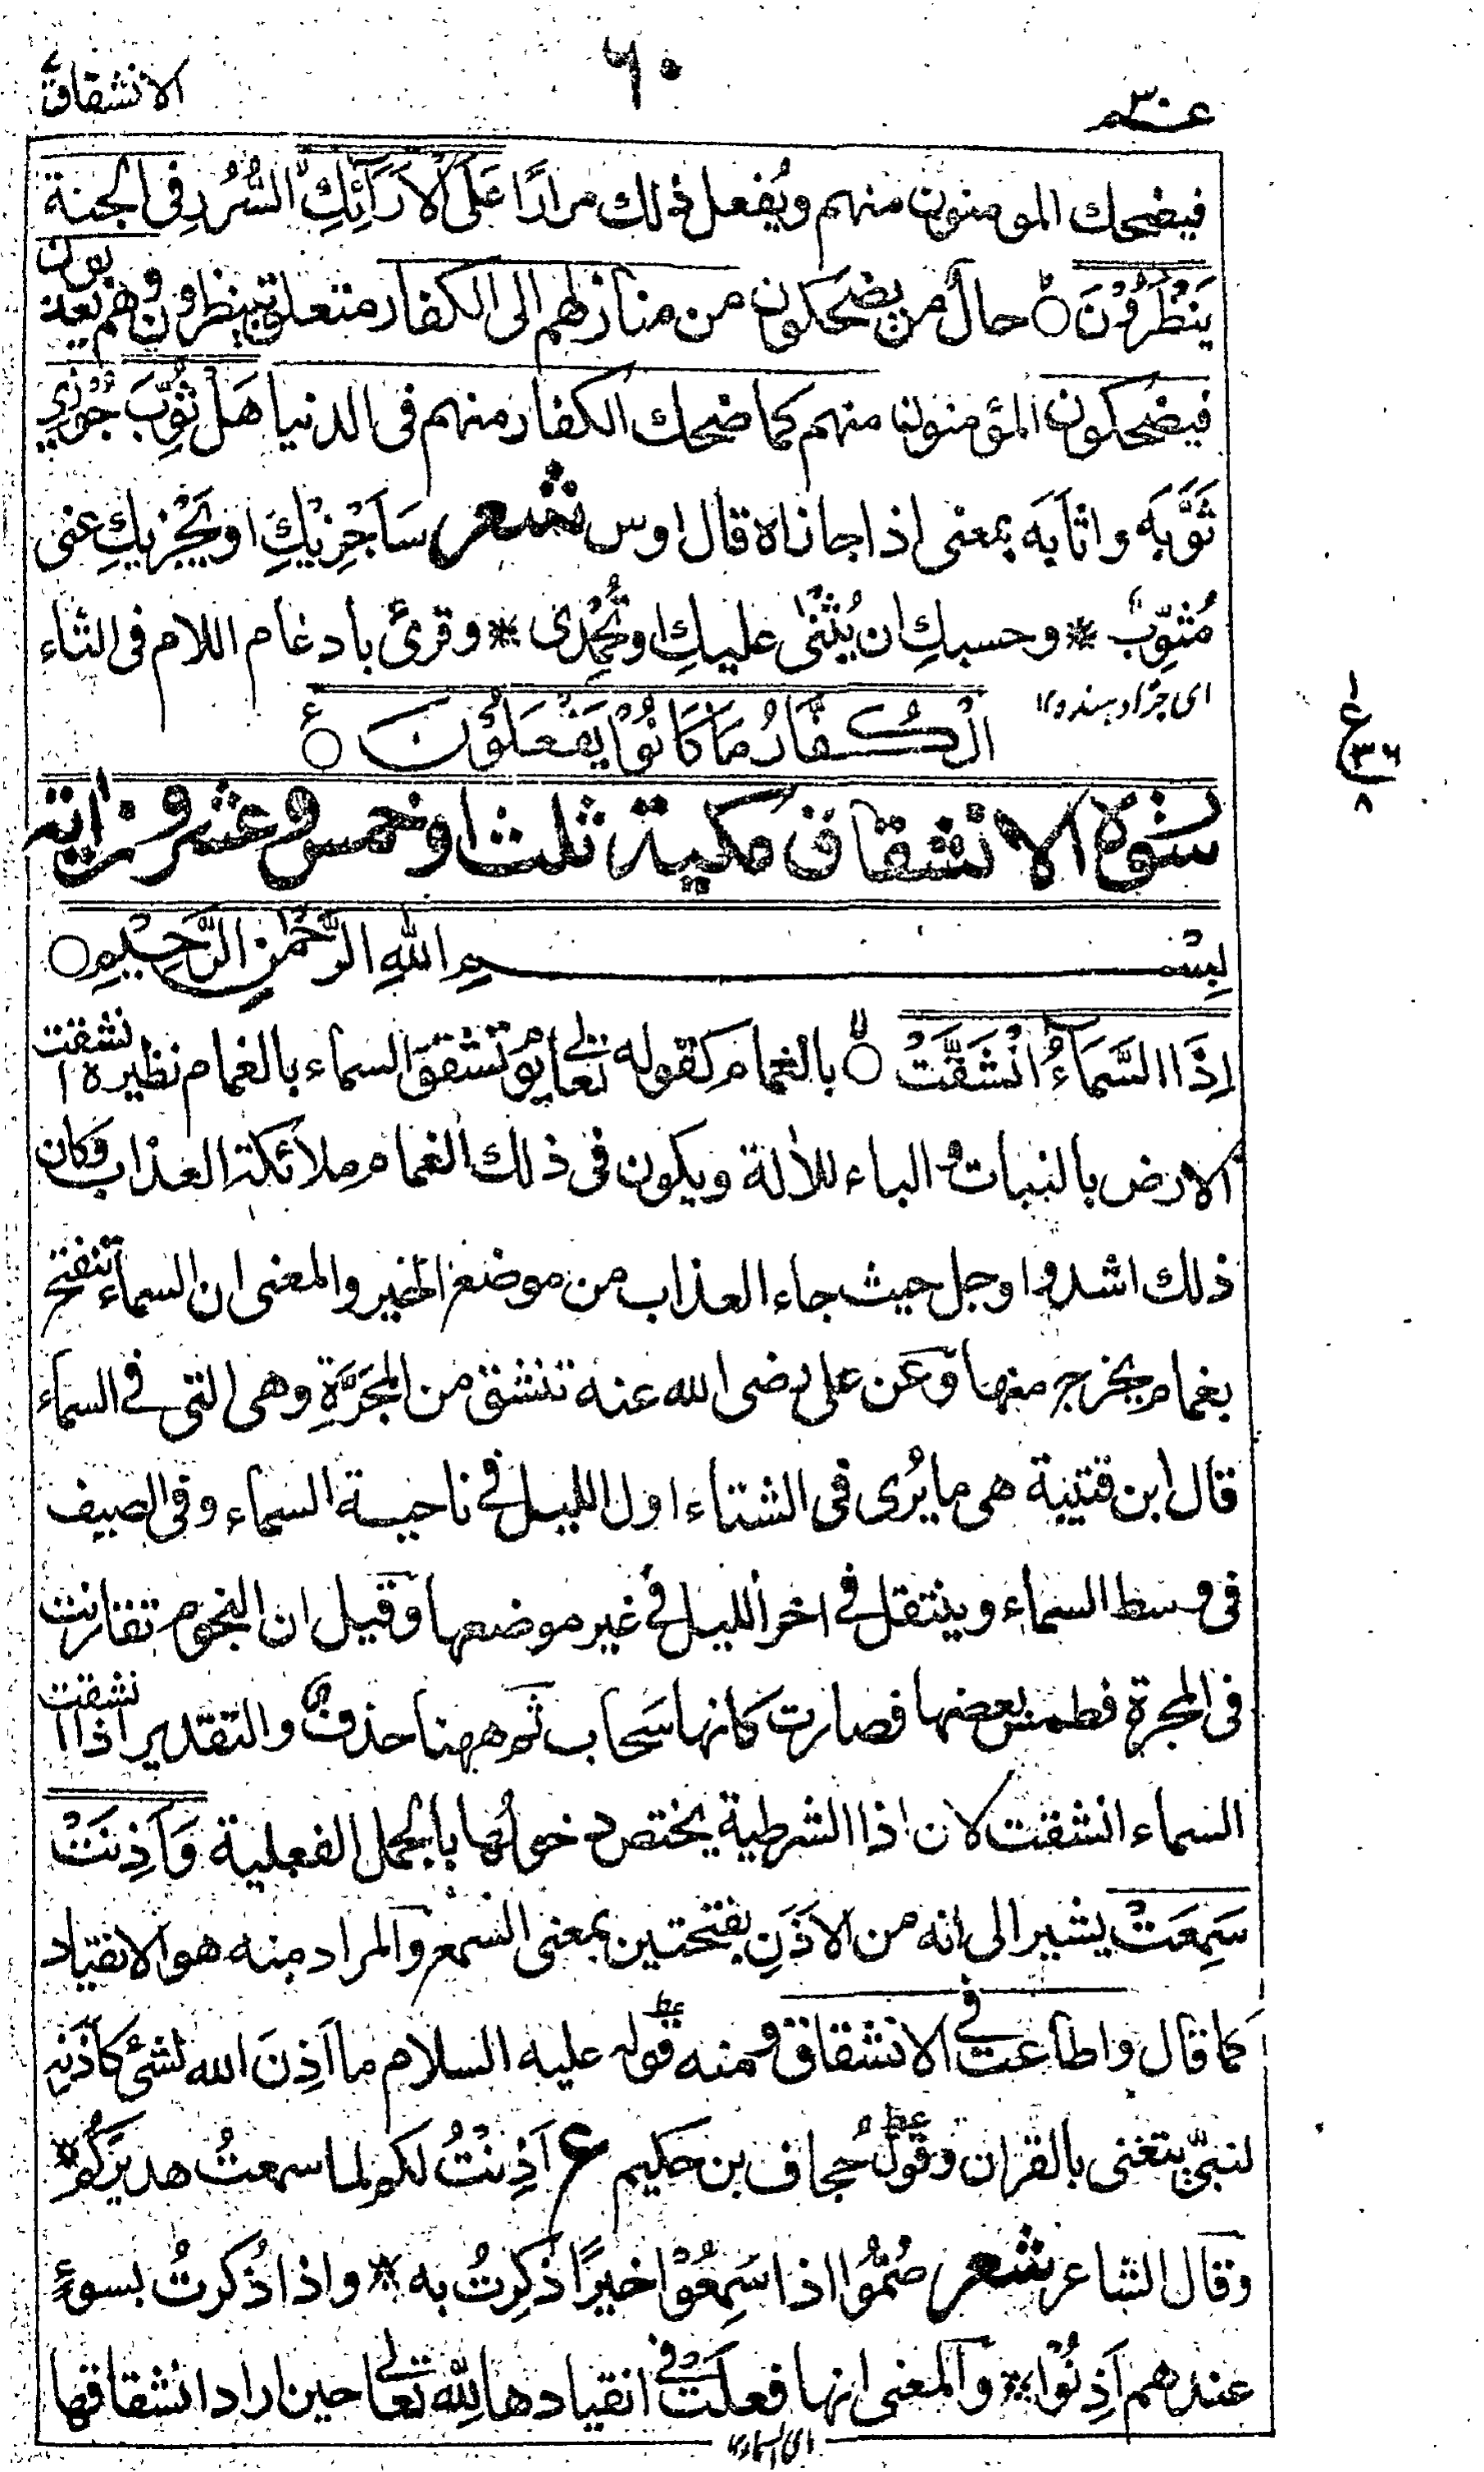 عم ٣٠
٦٠
الانشقاق
فيضحك المومنون منهم ويُفعل ذلك مرارًا عَلَى الْاَرَآئِكِ السُّرُر فى الجنة
يَنْظُرُوْنَ ○ حال من يضحكون من منازلهم الى الكفار متعلق بينظرون وهم يعذبون
فيضحكون المؤمنون منهم كما ضحك الكفار منهم فى الدنيا هَلْ ثُوِّبَ جُوْزِيَ
ثَوَّبَه واثابَه بمعنى اذا جازاه قال اوس شعر سَاَجْزِيْكِ اويَجْزِيكِ عنى
مُثوِّب * وحسبكِ ان يُثْنٰى عليكِ وتُحْمَدى * وقرئ بادغام اللام فى الثاء
اى جزا دہندہ ١٢
الْكُفَّارُ مَا كَانُوْا يَفْعَلُوْنَ ○ ع
١
ع
٣٦
٨
سورة الانشقاق مكية ثلث او خمس وعشرون اية
بِسْمِ اللهِ الرَّحْمٰنِ الرَّحِيْمِ ○
اِذَا السَّمَآءُ انْشَقَّتْ ○ بالغمام كقوله تعالى يوم تشقق السماء بالغمام نظيره انشقت
الارض بالنبات و الباء للألة ويكون فى ذلك الغمام ملائكة العذاب وكان
ذلك اشد واوجل حيث جاء العذاب من موضع الخير والمعنى ان السماء تنفتح
بغمام يخرج منها وعن على رضى الله عنه تنشق من المَجَرَّةِ وهى التى فى السماء
قال ابن قتيبة هى ما يُرى فى الشتاء اول الليل فى ناحية السماء وفى الصيف
فى وسط السماء وينتقل فى اخر الليل فى غير موضعها وقيل ان النجوم تقاربت
فى المجرة فطمس بعضها فصارت كانها سَحاب ثم ههنا حذف والتقدير اذا انشقت
السماء انشقت لان اذا الشرطية يختص دخولُها بالجمل الفعلية وَاَذِنَتْ
سَمِعَتْ يشير الى انه من الاَذَنِ بفتحتين بمعنى السمع والمراد منه هو الانقياد
كما قال واطاعت فى الانشقاق ومنه قوله عليه السلام ما اَذِنَ الله لشئ كاَذَنِه
لنبىّ يتغنى بالقران وقولُ حُجاف بن حكيم ع اَذِنْتُ لكم لما سمعتُ هديرَكُم *
وقال الشاعر شعر صُمُّوا اذا سَمِعُوْا خيرًا ذُكِرتُ به * واذا ذُكرتُ بسوءٍ
عندهم اَذِنُوْا * والمعنى انها فعلَتْ فى انقيادها لِلّٰهِ تعالى حين اراد انشقاقها
اى السماء ١٢